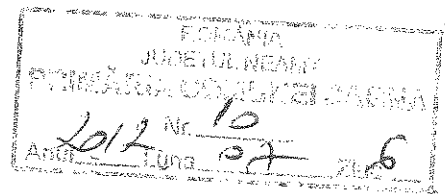 ROMÂNIA
JUDEȚUL NEAMȚ
PRIMĂRIA COMUNEI
Nr. 10
Anul 2012 Luna 07 Ziua 6